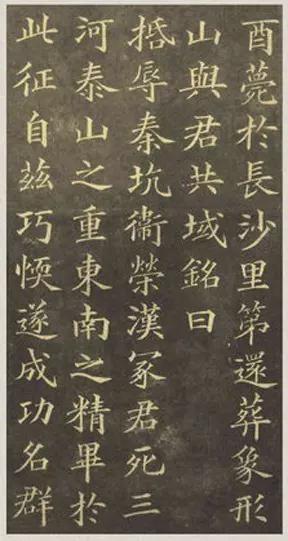 酉薨於長沙里第還葬象形
山與君共域銘曰
抵辱秦坑衛榮漢冢君死三
河泰山之重東南之精畢於
此征自茲巧遂成功名群